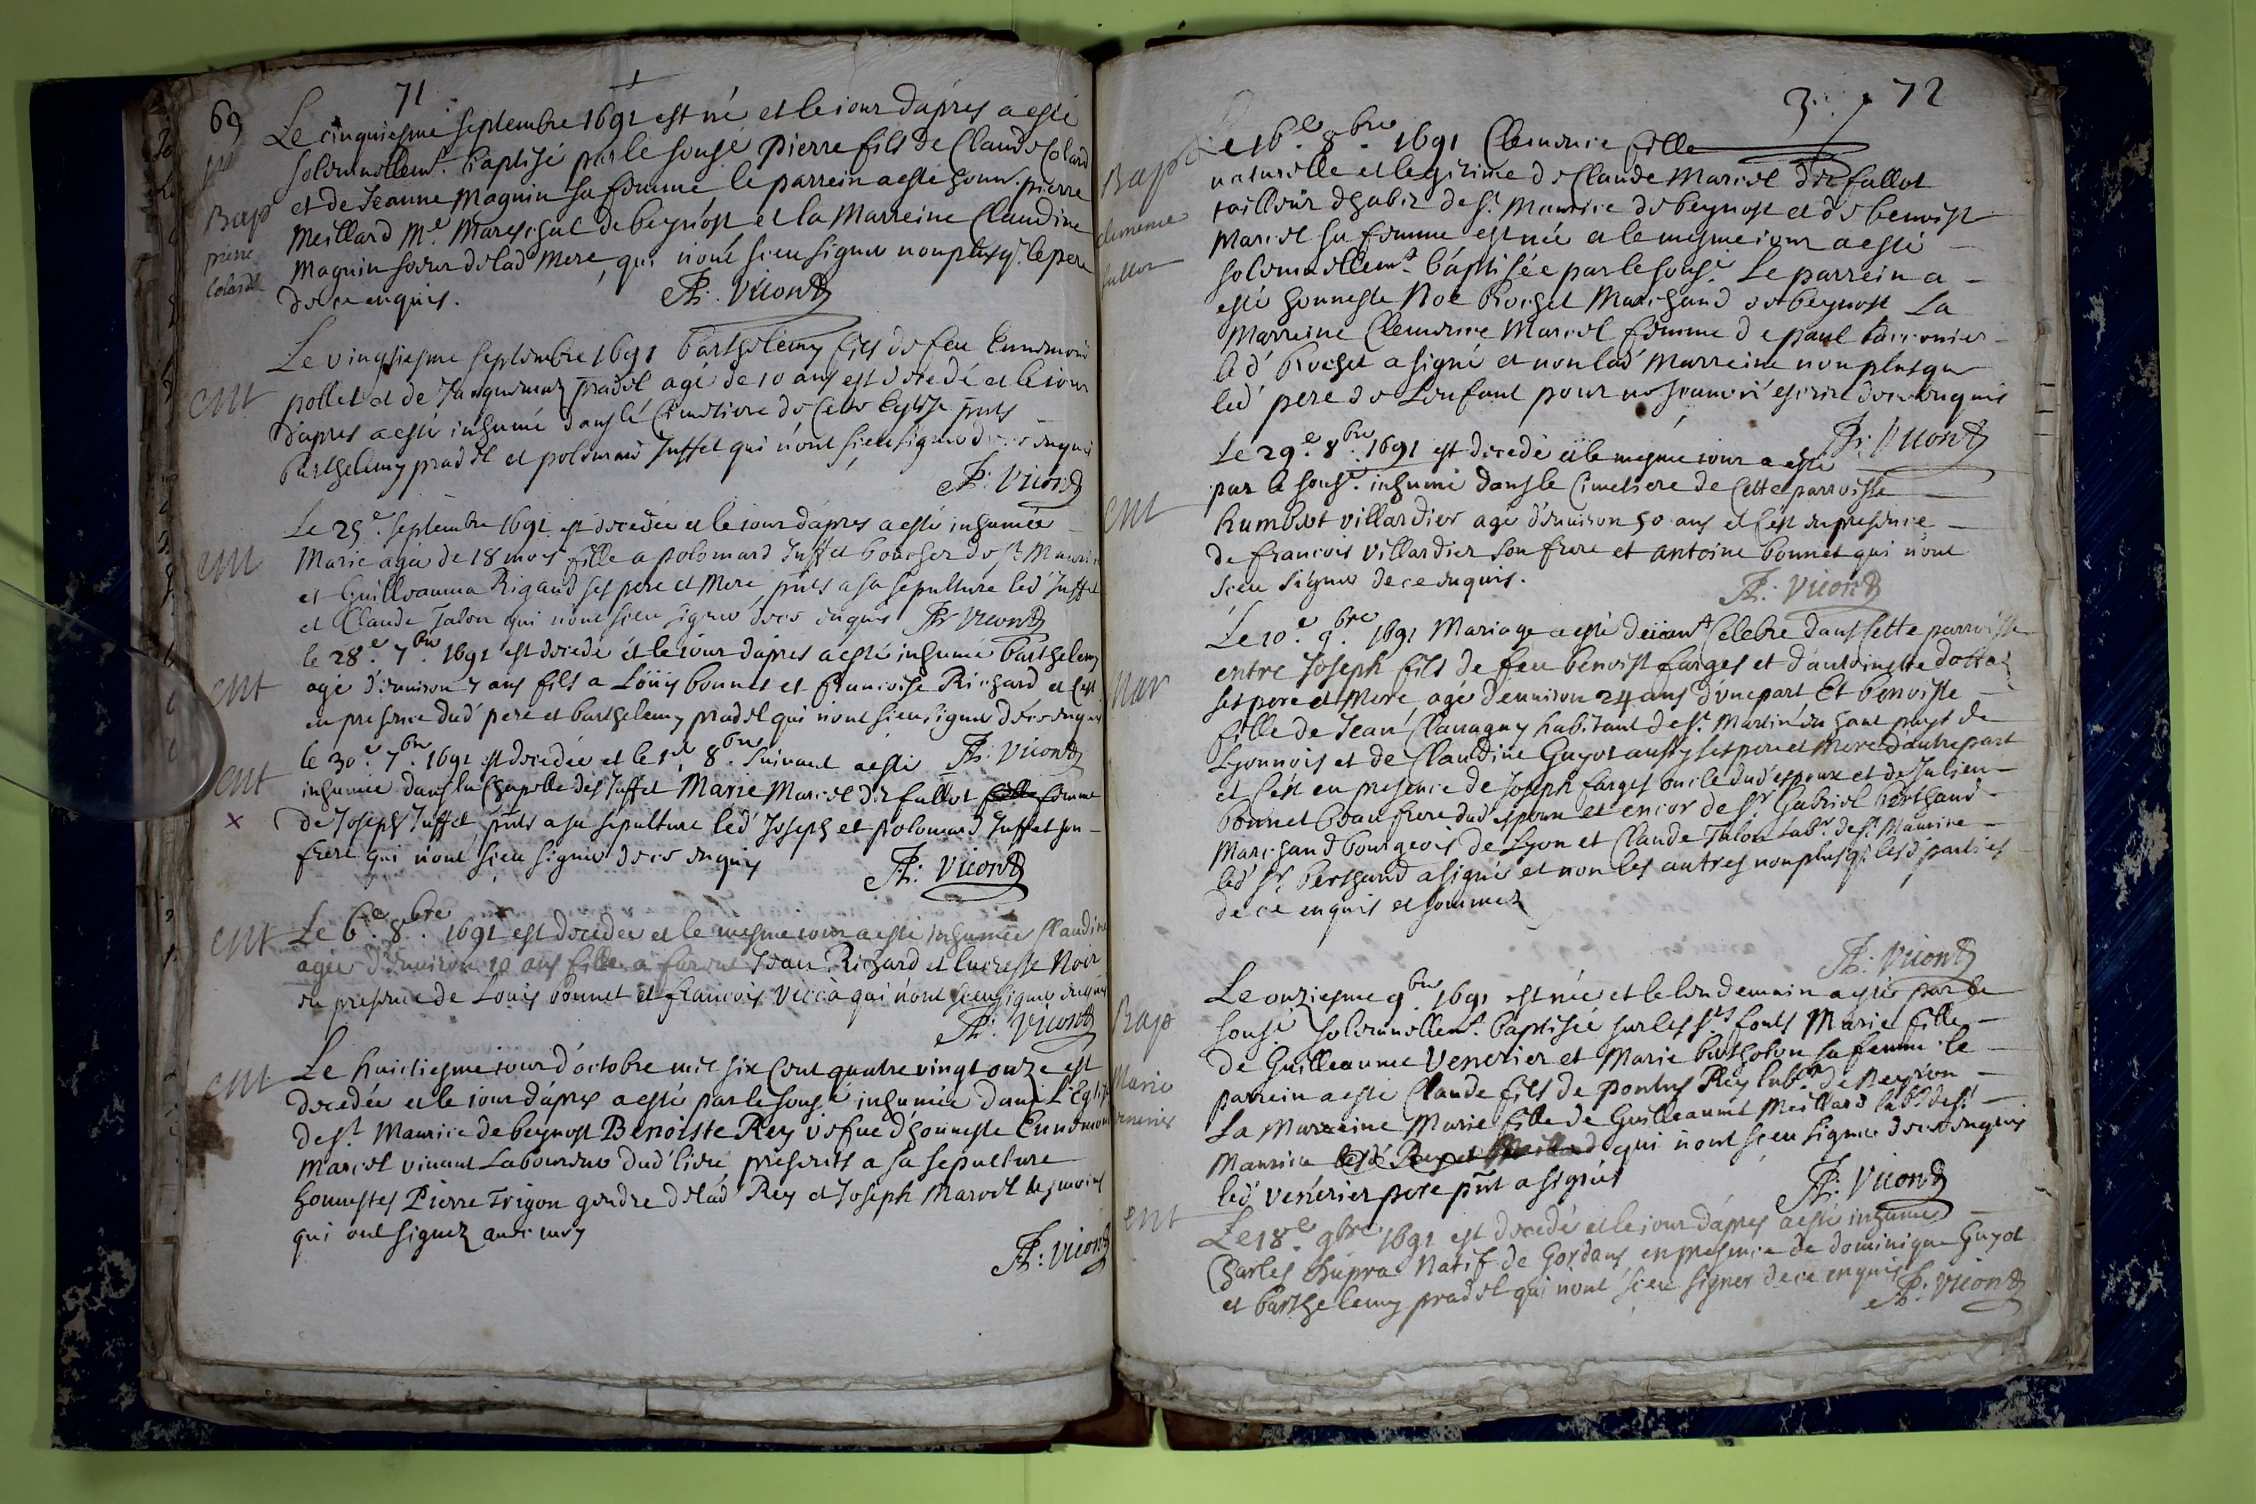 69
71
Bap
pierre
Colard
Le cinquiesme septembre 1691 est né et le iour d'apres a esté
solemnellemt. baptisé par le sousé pierre fils de Claude Colard
et de Jeanne Magnin sa femme le parrein a esté honn. pierre
Meillard Me. Mareschal de beynost et la Marreine Claudine
Magnin soeur de lad' Mere, qui n'ont sceu signer non plus q. le pere
de ce enquis.
Vicond
ent
Le vingtiesme septembre 1691 barthelemy fils de feu Ennemond
pollet et de pradel agé de 10 ans est decedé et le iour
d'apres a esté inhumé dans le Cimetiere de Cette Eglise pnts
barthelemy pradel et polemard Juffet qui n'ont sceu signer de ce enquis
Vicond
ent
Le 25e septembre 1691 est decedée et le iour d'apres a esté inhumée
Marie agée de 18 mois fille a polemard Juffet boucher de st Maurice
et Guilleauma Rigaud ses pere et Mere, pnts a sa sepulture led' Juffet
et Claude Talon qui n'ont sceu signer de ce enquis Vicond
ent
le 28e. 7bre 1691 est decedé et le iour d'apres a esté inhumé barthelemy
agé d'enuiron 7 ans fils a Loüis bonnet et francoise Richard et c'est
en presence dud' pere et barthelemy pradel qui n'ont sceu signer de ce enquis
Vicond
ent
x
le 30e. 7bre. 1691 est decedée et le 1er 8bre. suivant a esté
inhumée dans la Chapelle des Juffet Marie Marcel dit fallot fille femme
de Joseph Juffet, pnts a sa sepulture led' Joseph et polemard Juffet son
frere qui n'ont sceu signer de ce enquis
Vicond
ent
Le 6e. 8bre. 1691 est decedée et le mesme iour a esté inhumée Claudine
agée d'enuiron 10 ans fille a Jean Richard et lucresse Noir
en presence de Louis bonnet et francois qui n'ont sceu signer enquis
Vicond
ent
Le huictiesme iour d'octobre mil six cent quatre vingt onze est
decedée et le iour d'apres a esté par le sousé inhumée dans L'Eglise
de st. Maurice de beynost Benoiste Rey vefue d'honneste Ennemond
Marcel viuant Laboureur dud' lieu presents a sa sepulture
honnestes Pierre Trigon gendre de lad' Rey et Joseph Marcel tesmoins
qui ont signez auec moy
Vicond
3
72
Bap
clemence
fallot
Le 16e. 8bre. 1691 Clemence fille
naturelle et legitime de Claude Marcel dit fallot
tailleur d'habit de st Maurice de beynost et de benoist
Marcel sa femme est née et le mesme iour a esté
solemnellemt. baptisée par le sousé Le parrein a
esté honneste Noé Rochet Marchand de beynost La
Marreine Clemence Marcel femme de paul
led' Rochet a signé et non lad' Marreine non plus que
led' pere de L'enfant pour ne sçauoir escrire de ce enquis
Vicond
ent
Le 29e. 8bre. 1691 est decedé et le mesme iour a esté
par le sousé. inhumé dans le Cimetiere de Cette parroisse
humbert villardier agé d'enuiron 50 ans et c'est en presence
de francois villardier son frere et antoine bonnet qui n'ont
sceu signer de ce enquis.
Vicond
Mar
Le 10e. 9bre. 1691 Mariage a esté Celebré dans Cette parroisse
entre Joseph fils de feu benoist farges et d'antoinette
ses pere et Mere, agé d'enuiron 24 ans d'une part Et benoiste
fille de Jean Clauagny habitant de st. Martin en haut pays de
Lyonnois et de Claudine Guyot aussy ses pere et Mere d'autre part
et c'est en presence de Joseph farges oncle dud' espoux et de Julien
bonnet beau frere dud' espoux et encor de sr Gabriel berthaud
Marchand bourgeois de Lyon et Claude Talon labr. de st. Maurice
led' sr. berthaud a signé et non les autres non plus q. les d' parties
de ce enquis et sommez
Vicond
Bap
Marie
venerier
Le onziesme 9bre 1691 est née et le lendemain a esté par le
sousé solemnellemt. baptisée sur les sts fonts Marie fille
de Guilleaume Venerier et Marie bertholon sa femme le
parrein a esté Claude fils de pontus Rey labr. de Neyron
La Marreine Marie fille de Guilleaume Meillard labr de st
Maurice lesd' Rey et Meillard qui n'ont sceu signer de ce enquis
led' venerier pere pnt a signé
Vicond
ent
Le 18e. 9bre 1691 est decedé et le iour d'apres a esté inhumé
Charles Dupra Natif de Gordans en presence de dominique Guyot
et barthelemy pradel qui n'ont sceu signer de ce enquis
Vicond